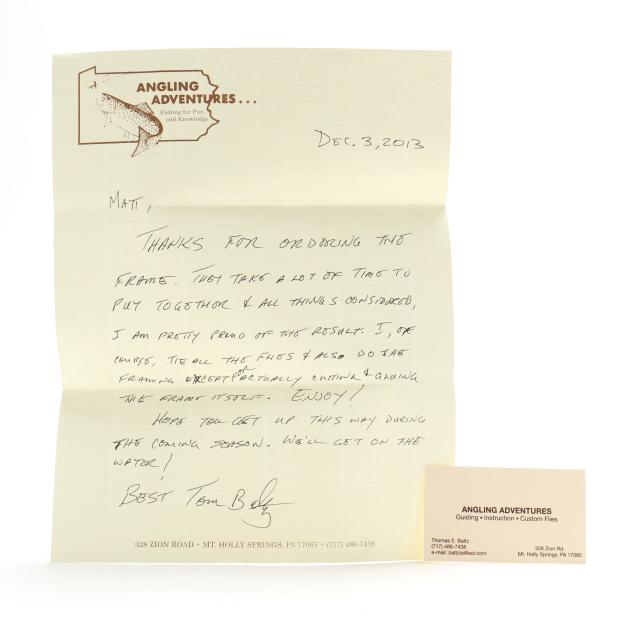 ANGLING
ADVENTURES...
Fishing for Fun
and Knowledge
DEC. 3, 2013
MATT,
THANKS FOR ORDERING THE
FRAME. THEY TAKE A LOT OF TIME TO
PUT TOGETHER & ALL THINGS CONSIDERED,
I AM PRETTY PROUD OF THE RESULT. I, OF
COURSE, TIE ALL THE FLIES & ALSO DO THE
FRAMING EXCEPT FOR ACTUALLY CUTTING & GLUING
THE FRAME ITSELF. ENJOY!
HOPE YOU GET UP THIS WAY DURING
THE COMING SEASON. WE'LL GET ON THE
WATER!
BEST Tom Baltz
328 ZION ROAD • MT. HOLLY SPRINGS, PA 17065 • (717) 486-7438
ANGLING ADVENTURES
Guiding • Instruction • Custom Flies
Thomas E. Baltz
(717) 486-7438
e-mail: baltzte@aol.com
328 Zion Rd.
Mt. Holly Springs, PA 17065